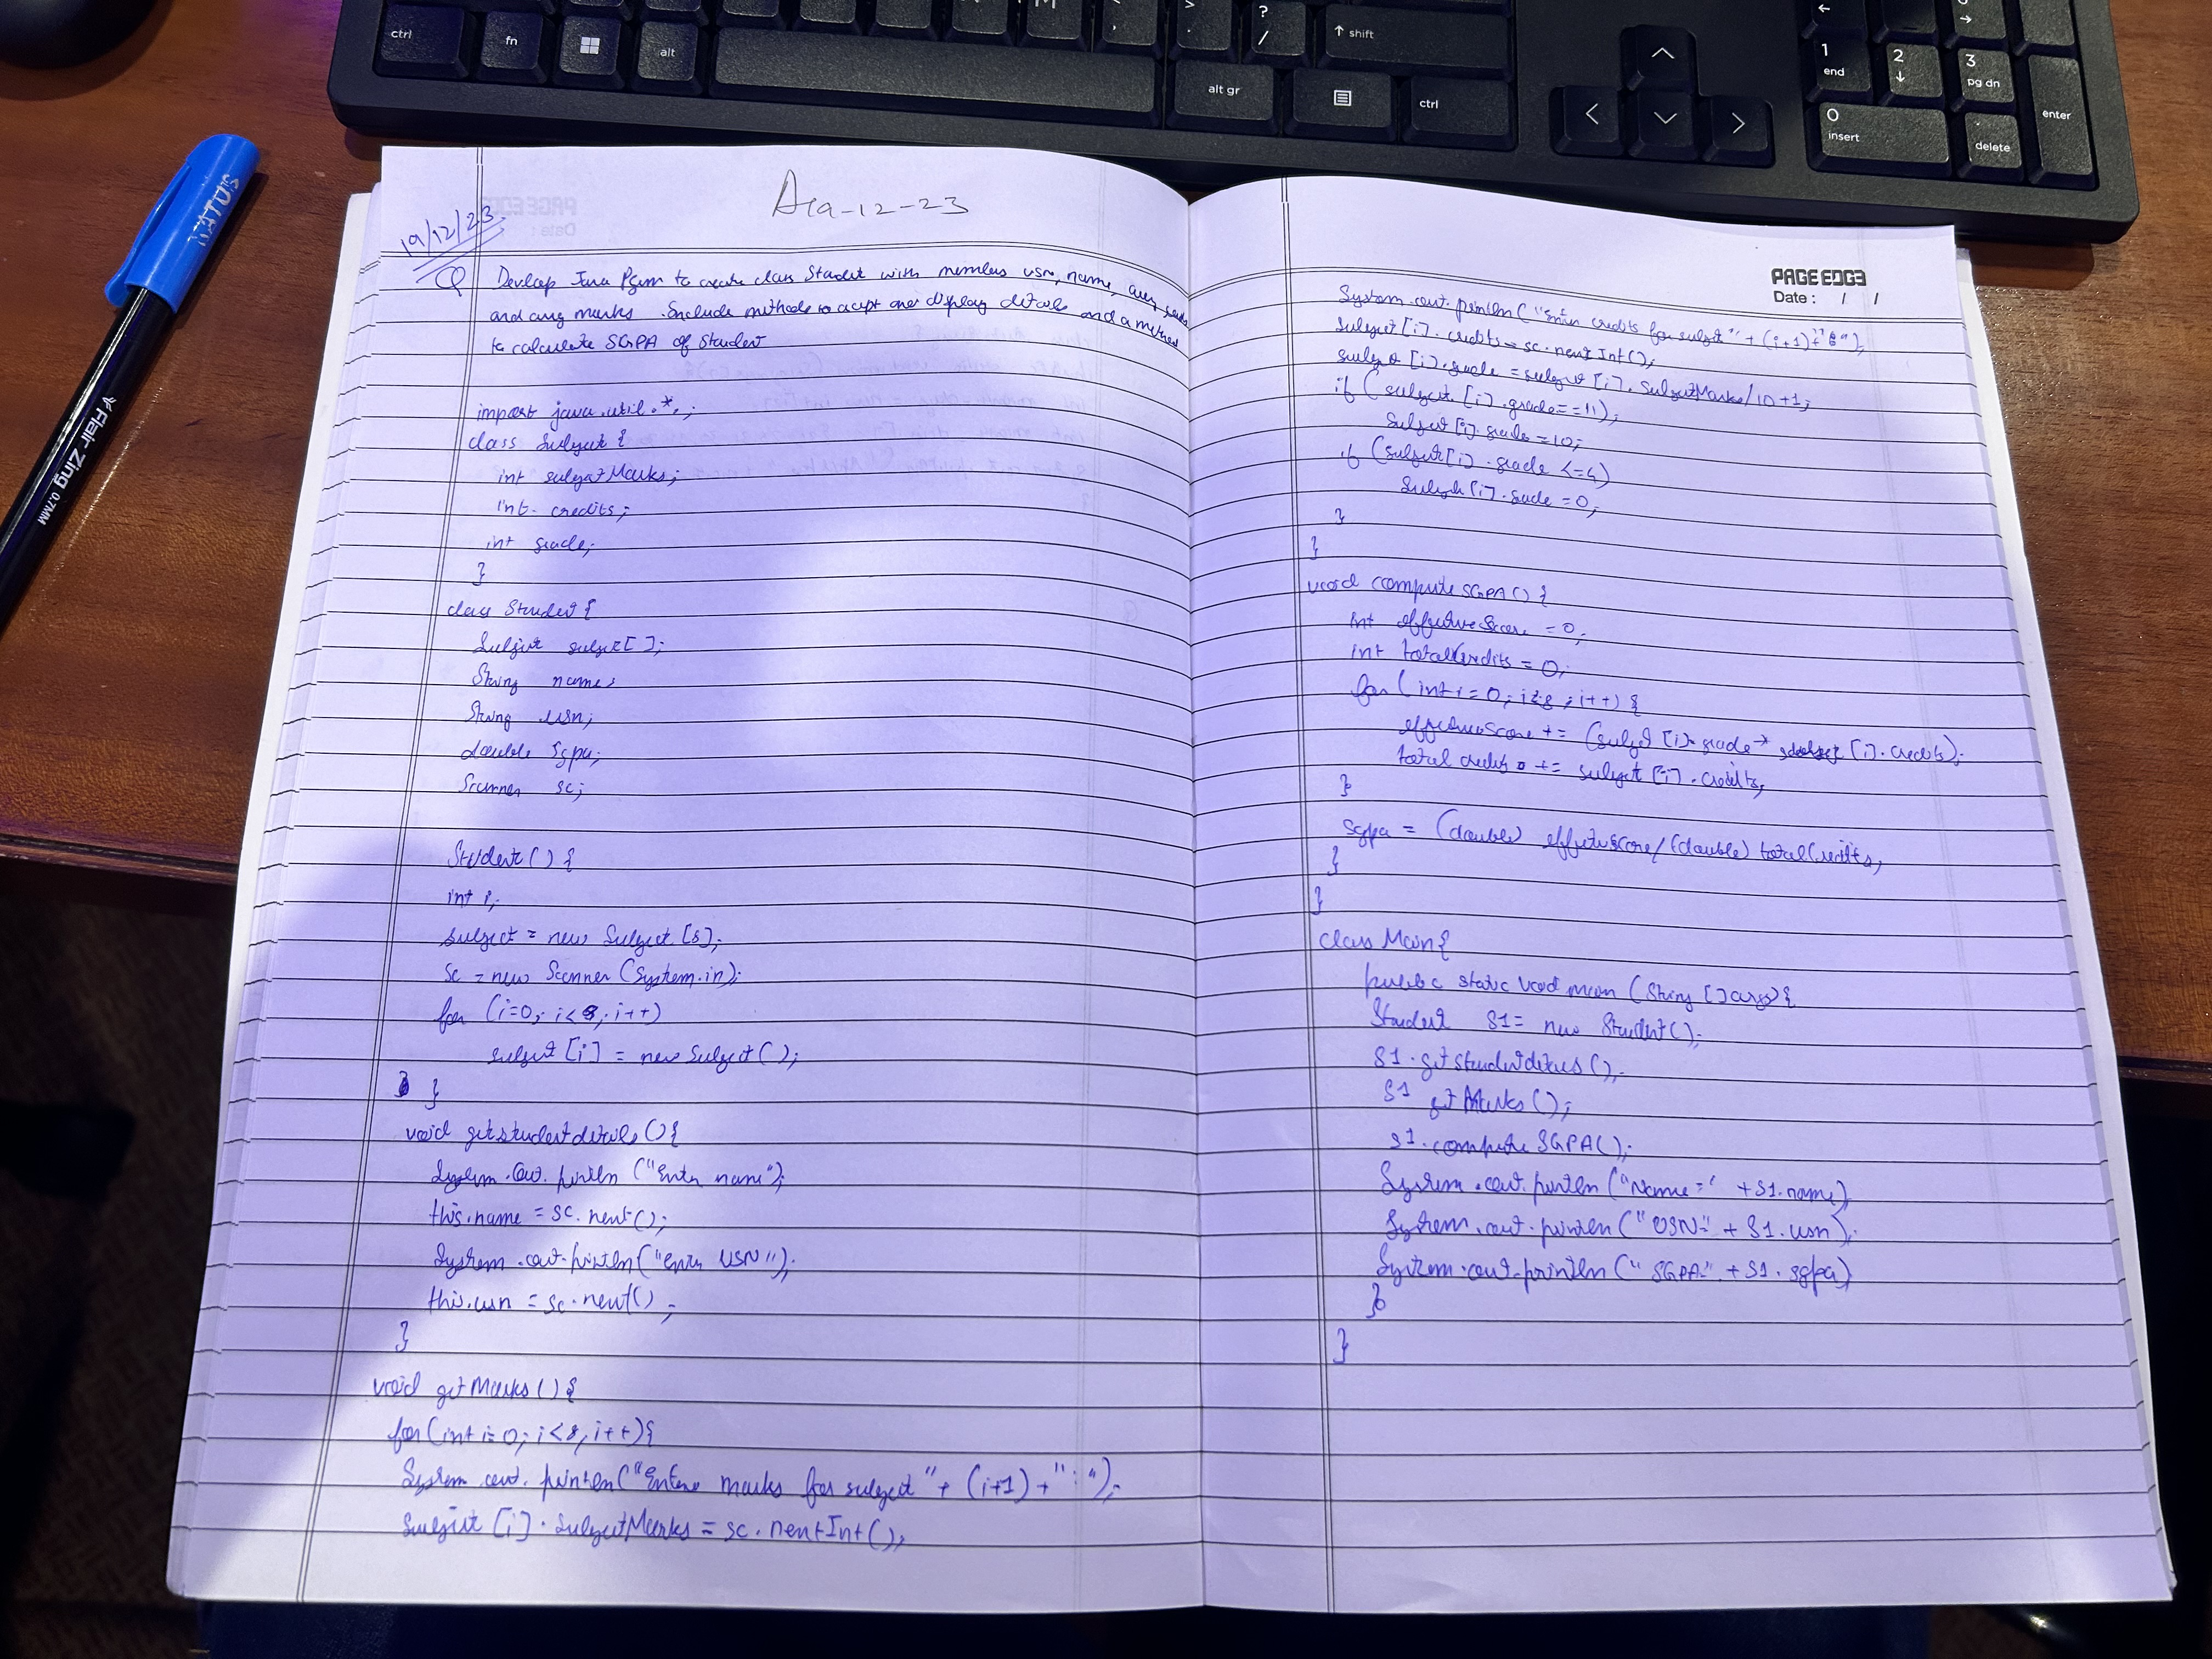 Acia-12-23
19/12/23
Q Develop Java Pgm to create class Student with members usn, name, array
and array marks. Include methods to accept and display details and a method
to calculate SGPA of student
import java.util.*;
class Subject {
int subjectMarks;
int credits;
int grade;
}
class Student {
Subject subject[];
String name;
String usn;
double sgpa;
Scanner sc;
Student() {
int i;
subject = new Subject[8];
sc = new Scanner(System.in);
for (i=0; i<8; i++)
subject[i] = new Subject();
}
void getstudentdetails(){
System.out.println("Enter name");
this.name = sc.next();
System.out.println("Enter USN");
this.usn = sc.next();
}
void getMarks(){
for(int i=0; i<8; i++){
System.out.println("Enter marks for subject" + (i+1) + ":");
subject[i].subjectMarks = sc.nextInt();
PAGEEDGE
Date: / /
System.out.println("Enter credits for subject" + (i+1)+":");
subject[i].credits = sc.nextInt();
subject[i].grade = subject[i].subjectMarks/10+1;
if (subject[i].grade==11);
subject[i].grade=10;
if (subject[i].grade <=4)
subject[i].grade=0;
}
}
void computeSGPA(){
int effectiveScore = 0;
int totalCredits = 0;
for(int i=0; i<8; i++){
effectiveScore += (subject[i].grade * subject[i].credits);
totalcredits += subject[i].credits;
}
sgpa = (double) effectivescore/(double) totalCredits;
}
}
class Main{
public static void main (String []args){
Student s1= new Student();
s1.getstudentdetails();
s1 getMarks();
s1.computeSGPA();
System.out.println("Name=" +s1.name)
System.out.println("USN=" + s1.usn);
System.out.println("SGPA=" + s1.sgpa)
}
}
Flair Zing 0.7MM
ctrl
fn
alt
alt gr
ctrl
shift
? /
0 insert
1 end
2
3 pg dn
. delete
enter